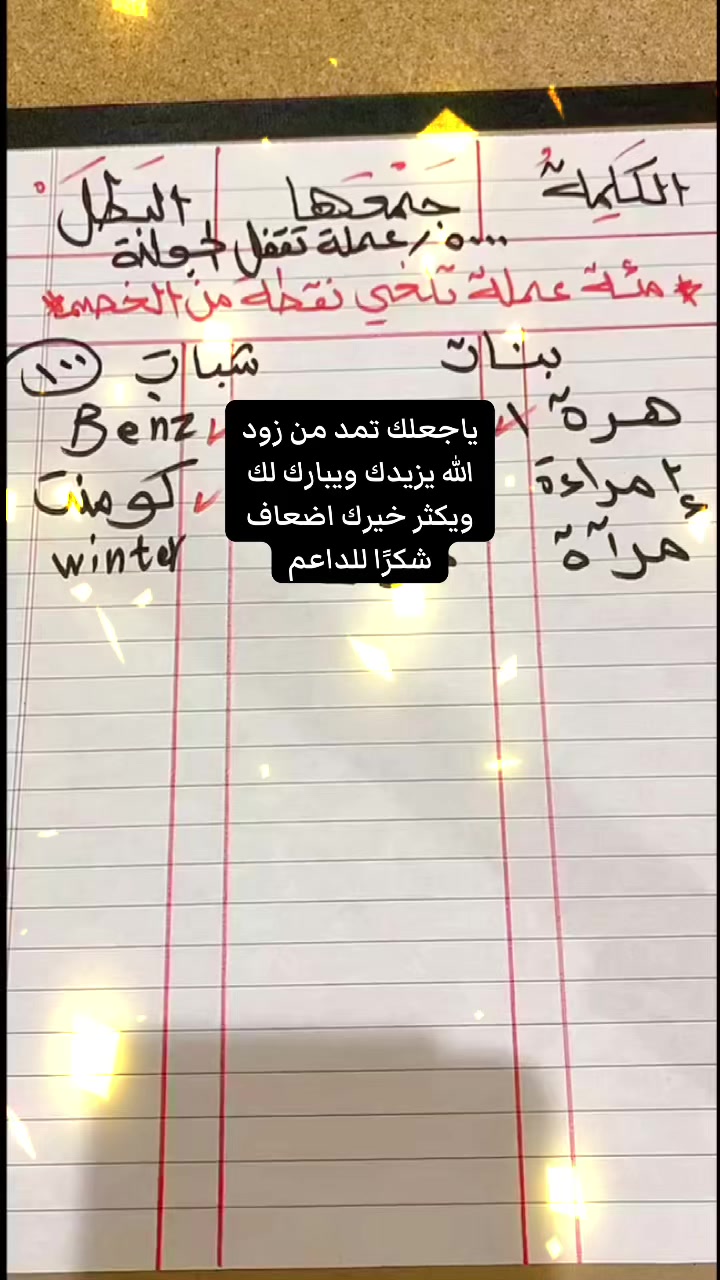 الكَلِمةُ جَمْعها البَطَل
٥٠٠٠/عملة تقفل الجولة
* مئة عملة تلغي نقطة من الخصم *
بنات شباب ١٠٠
هرة ١ Benz
إمراءة كومنت
مرآة winter
ياجعلك تمد من زود
الله يزيدك ويبارك لك
ويكثر خيرك اضعاف
شكرًا للداعم